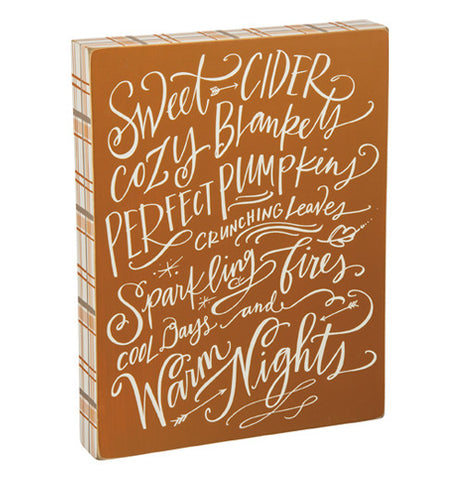 Sweet CIDER
COZY Blankets
PERFECT PUMPKINS
CRUNCHING Leaves
Sparkling Fires
COOL Days and
Warm Nights